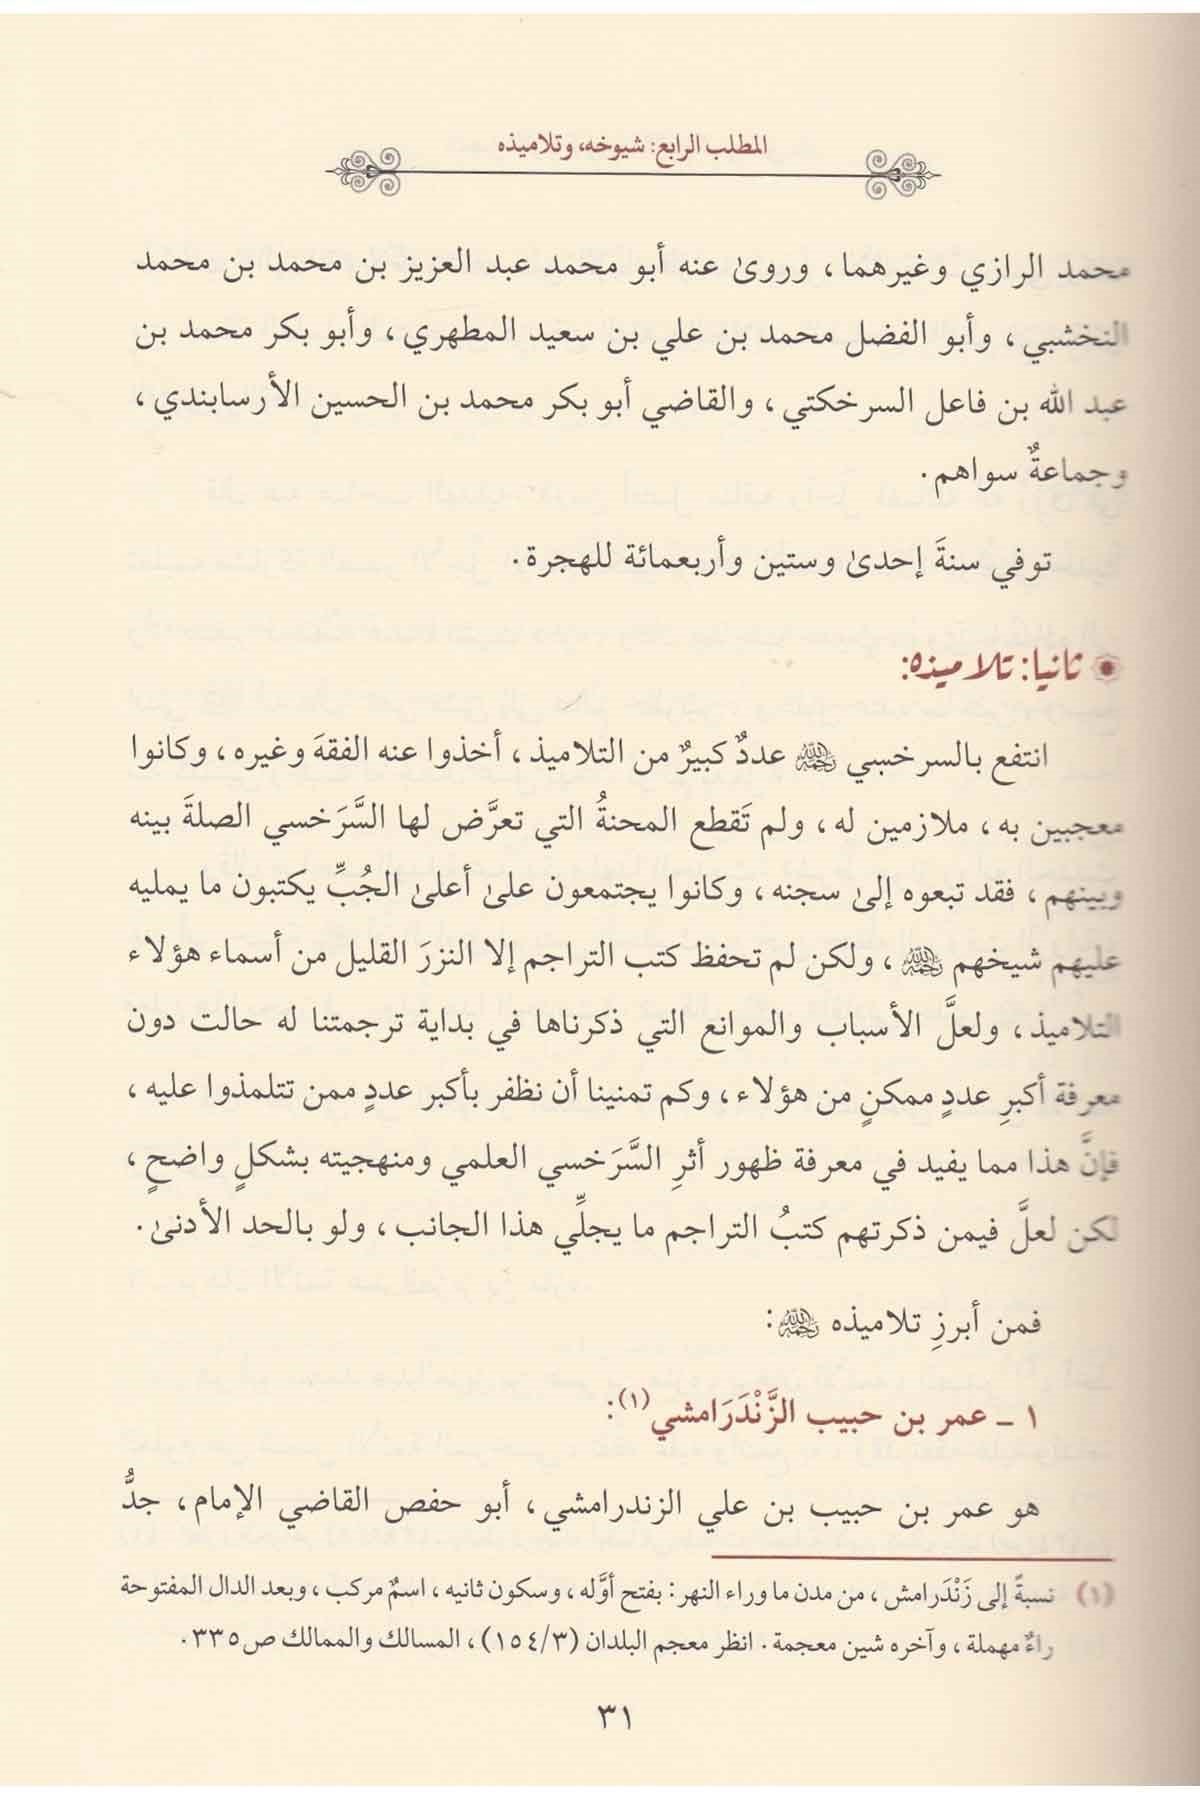 المطلب الرابع: شيوخه، وتلاميذه
محمد الرازي وغيرهما، وروىٰ عنه أبو محمد عبد العزيز بن محمد بن محمد
النخشبي، وأبو الفضل محمد بن علي بن سعيد المطهري، وأبو بكر محمد بن
عبد الله بن فاعل السرخكتي، والقاضي أبو بكر محمد بن الحسين الأرسابندي،
وجماعةٌ سواهم.
توفي سنةَ إحدىٰ وستين وأربعمائة للهجرة.
ثانيا: تلاميذه:
انتفع بالسرخسي رحمه الله عددٌ كبيرٌ من التلاميذ، أخذوا عنه الفقهَ وغيره، وكانوا
معجبين به، ملازمين له، ولم تَقطع المحنةُ التي تعرَّض لها السَّرَخسي الصلةَ بينه
وبينهم، فقد تبعوه إلىٰ سجنه، وكانوا يجتمعون علىٰ أعلىٰ الجُبِّ يكتبون ما يمليه
عليهم شيخهم رحمه الله، ولكن لم تحفظ كتب التراجم إلا النزرَ القليل من أسماء هؤلاء
التلاميذ، ولعلَّ الأسباب والموانع التي ذكرناها في بداية ترجمتنا له حالت دون
معرفة أكبرِ عددٍ ممكنٍ من هؤلاء، وكم تمنينا أن نظفر بأكبر عددٍ ممن تتلمذوا عليه،
فإنَّ هذا مما يفيد في معرفة ظهور أثرِ السَّرَخسي العلمي ومنهجيته بشكلٍ واضحٍ،
لكن لعلَّ فيمن ذكرتهم كتبُ التراجم ما يجلِّي هذا الجانب، ولو بالحد الأدنىٰ.
فمن أبرزِ تلاميذه رحمه الله:
١ ـ عمر بن حبيب الزَّنْدَرَامشي(١):
هو عمر بن حبيب بن علي الزندرامشي، أبو حفص القاضي الإمام، جدُّ
(١) نسبةً إلى زَنْدَرامش، من مدن ما وراء النهر: بفتح أوَّله، وسكون ثانيه، اسمٌ مركب، وبعد الدال المفتوحة
راءٌ مهملة، وآخره شين معجمة. انظر معجم البلدان (١٥٤/٣)، المسالك والممالك ص٣٣٥.
٣١